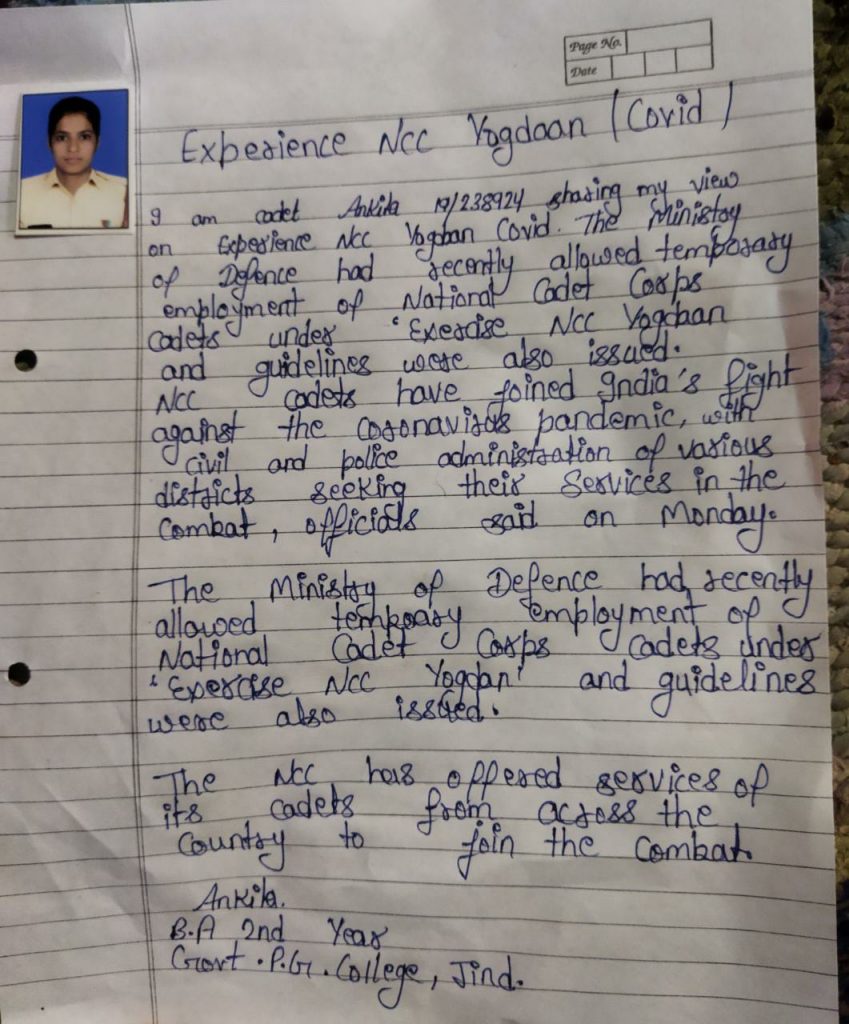 Page No.
Date
Experience NCC Yogdaan (Covid)
I am cadet Ankita 19/238924 sharing my view
on Experience NCC Yogdan Covid. The Ministry
of Defence had recently allowed temporary
employment of National Cadet Corps
cadets under 'Exercise NCC Yogdaan
and guidelines were also issued.
NCC cadets have joined India's fight
against the coronavirus pandemic, with
civil and police administration of various
districts seeking their services in the
combat, officials said on Monday.
The Ministry of Defence had recently
allowed tempoary employment of
National Cadet Corps cadets under
'Exercise NCC Yogdan' and guidelines
were also issued.
The NCC has offered services of
its cadets from across the
Country to join the combat.
Ankita.
B.A 2nd Year
Govt. P.G. College, Jind.